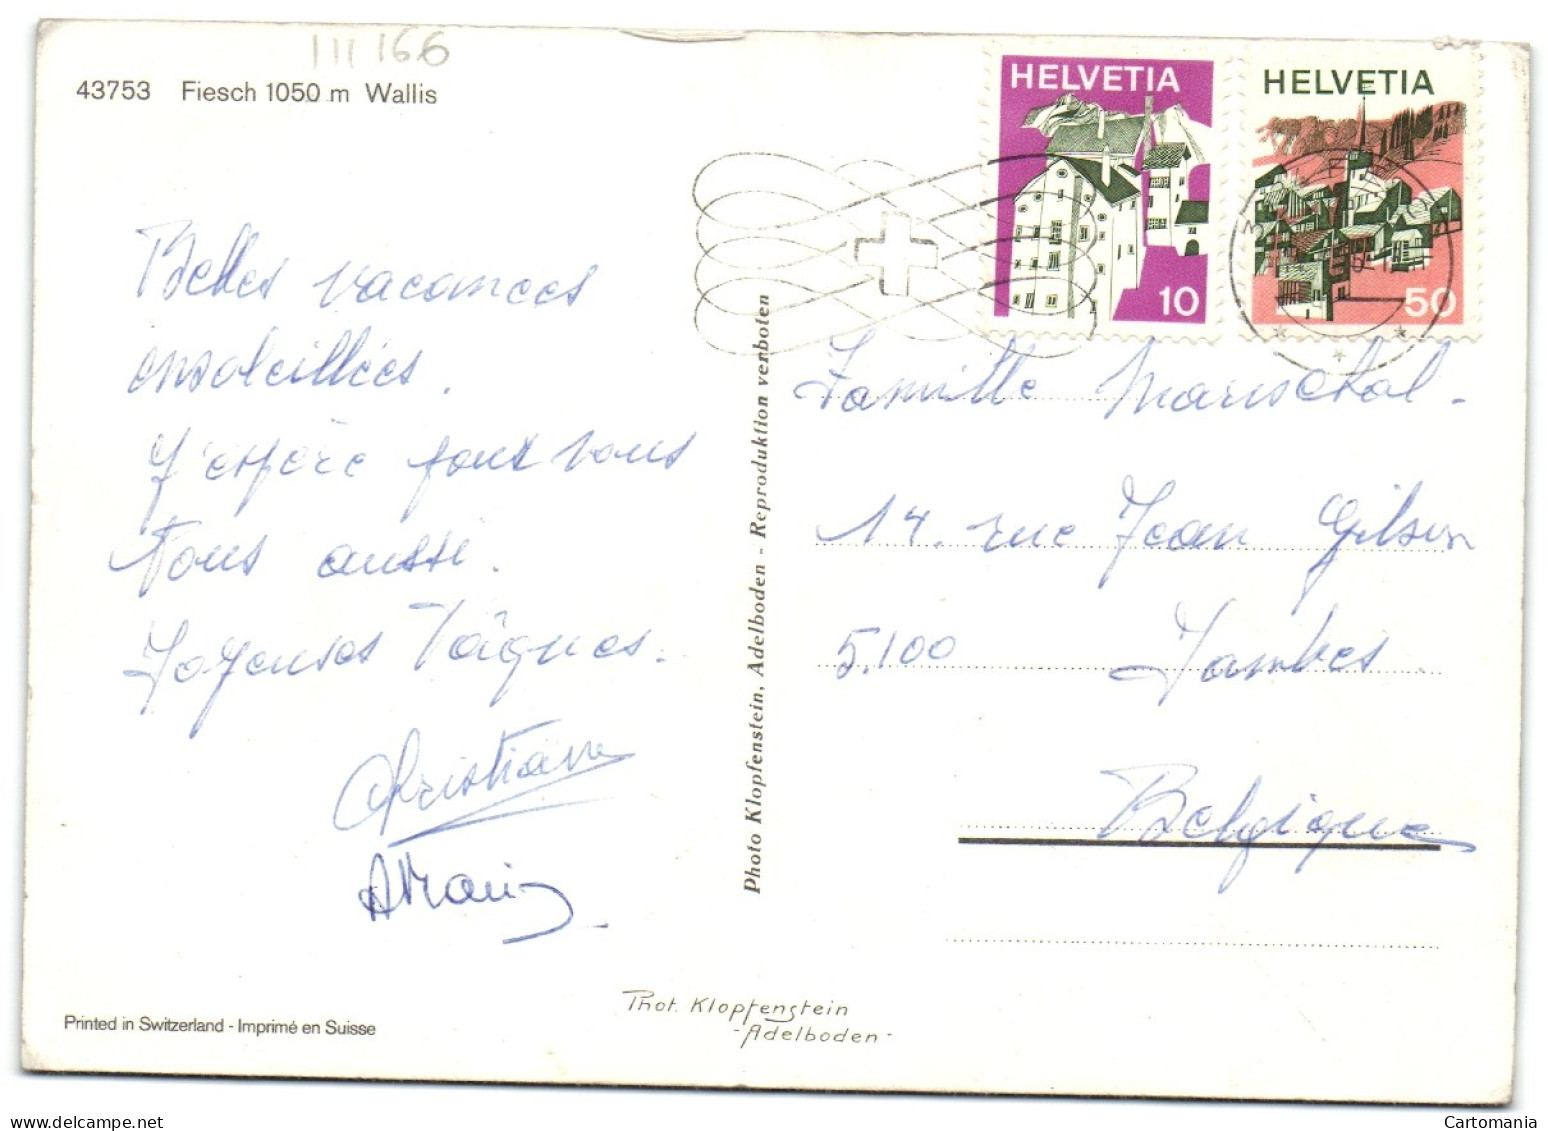 III 166
43753 Fiesch 1050 m Wallis
HELVETIA
10
HELVETIA
50
Belles vacances
ensoleillées.
J'espère pour vous
vous aussi.
Joyeuses Pâques.
Christiane
Photo Klopfenstein, Adelboden - Reproduktion verboten
Famille Marischal.
14. rue Jean Gilson
5.100 Jambes
Belgique
Phot. Klopfenstein
- Adelboden -
Printed in Switzerland - Imprimé en Suisse
www.delcampe.net
Cartomania